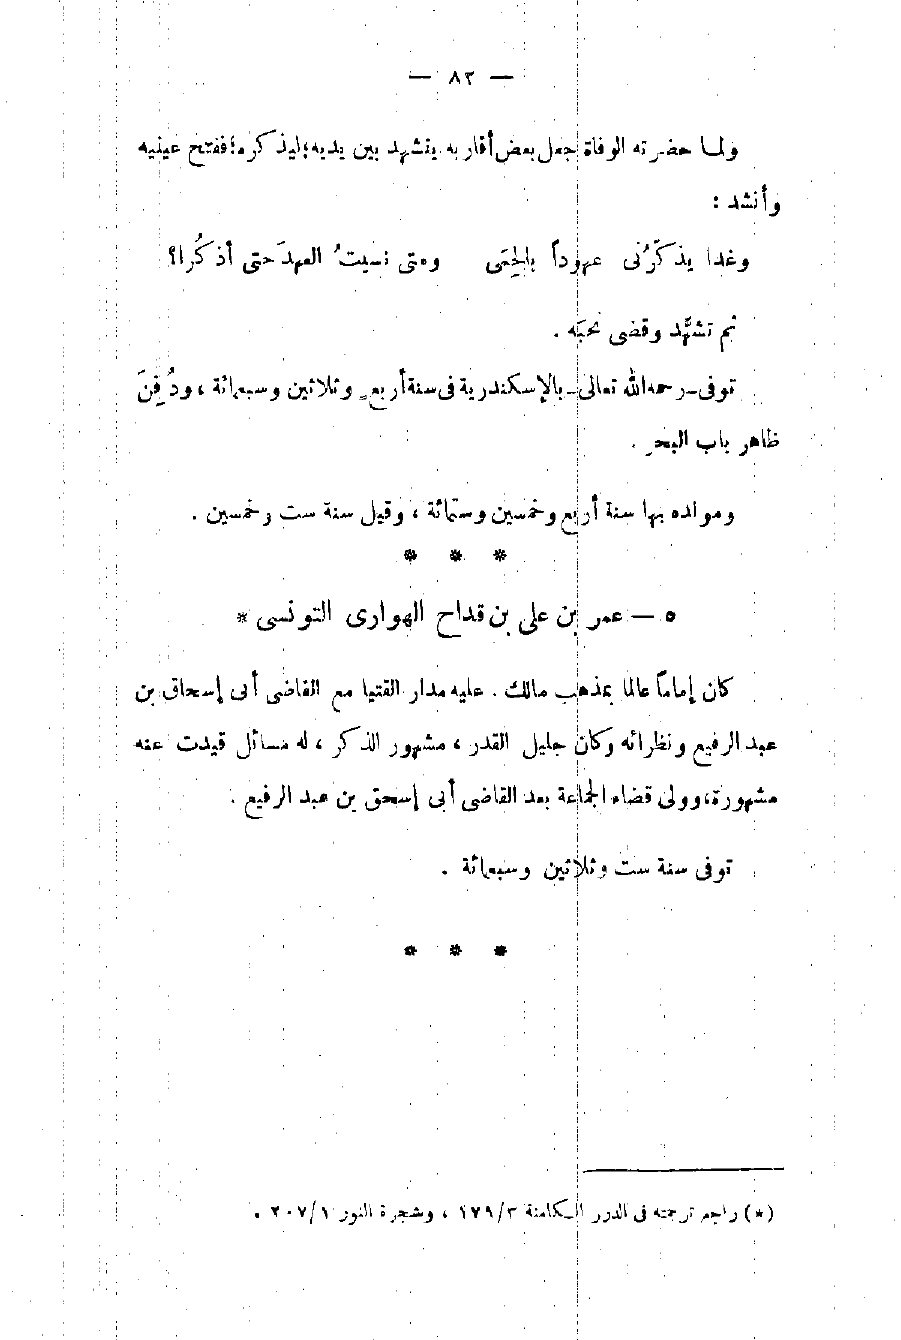 — ٨٢ —
ولما حضرته الوفاة جعل بعض أقاربه يتشهد بين يديه؛ ليذكره؛ ففتح عينيه
وأنشد :
وغدا يذكّرُنى عهوداً بالحِمَى ومتى نسيتُ العهدَ حتى أذكُرا؟
ثم تشهَّد وقضى نحبَه .
توفى ـ رحمه الله تعالى ـ بالإسكندرية فى سنة أربعٍ وثلاثين وسبعمائة ، ودُفِنَ
ظاهر باب البحر .
ومولده بها سنة أربع وخمسين وستمائة ، وقيل سنة ست وخمسين .
* * *
٥ — عمر بن على بن قداح الهوارى التونسى *
كان إماماً عالما بمذهب مالك . عليه مدار الفتيا مع القاضى أبى إسحاق بن
عبد الرفيع ونظرائه وكان جليل القدر ، مشهور الذكر ، له مسائل قيدت عنه
مشهورة، وولى قضاء الجماعة بعد القاضى أبى إسحق بن عبد الرفيع .
توفى سنة ست وثلاثين وسبعمائة .
* * *
(*) راجع ترجمته فى الدرر الكامنة ٣/١٧٩ ، وشجرة النور ١/٢٠٧ .